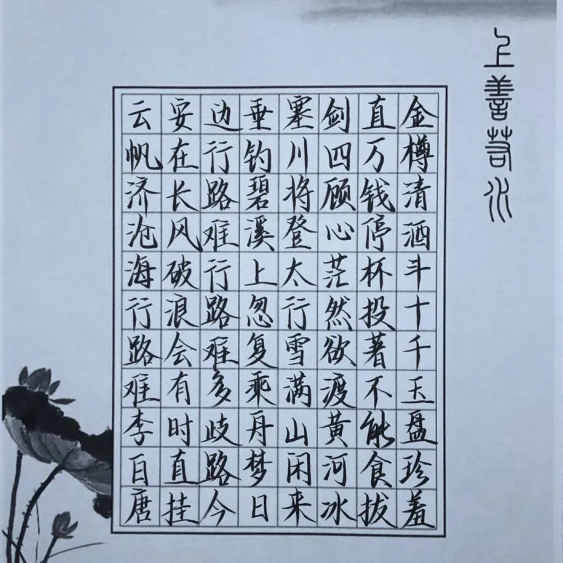 上善若水
金樽清酒斗十千玉盘珍羞
直万钱停杯投著不能食拔
剑四顾心茫然欲渡黄河冰
塞川将登太行雪满山闲来
垂钓碧溪上忽复乘舟梦日
边行路难行路难多歧路今
安在长风破浪会有时直挂
云帆济沧海行路难李白唐